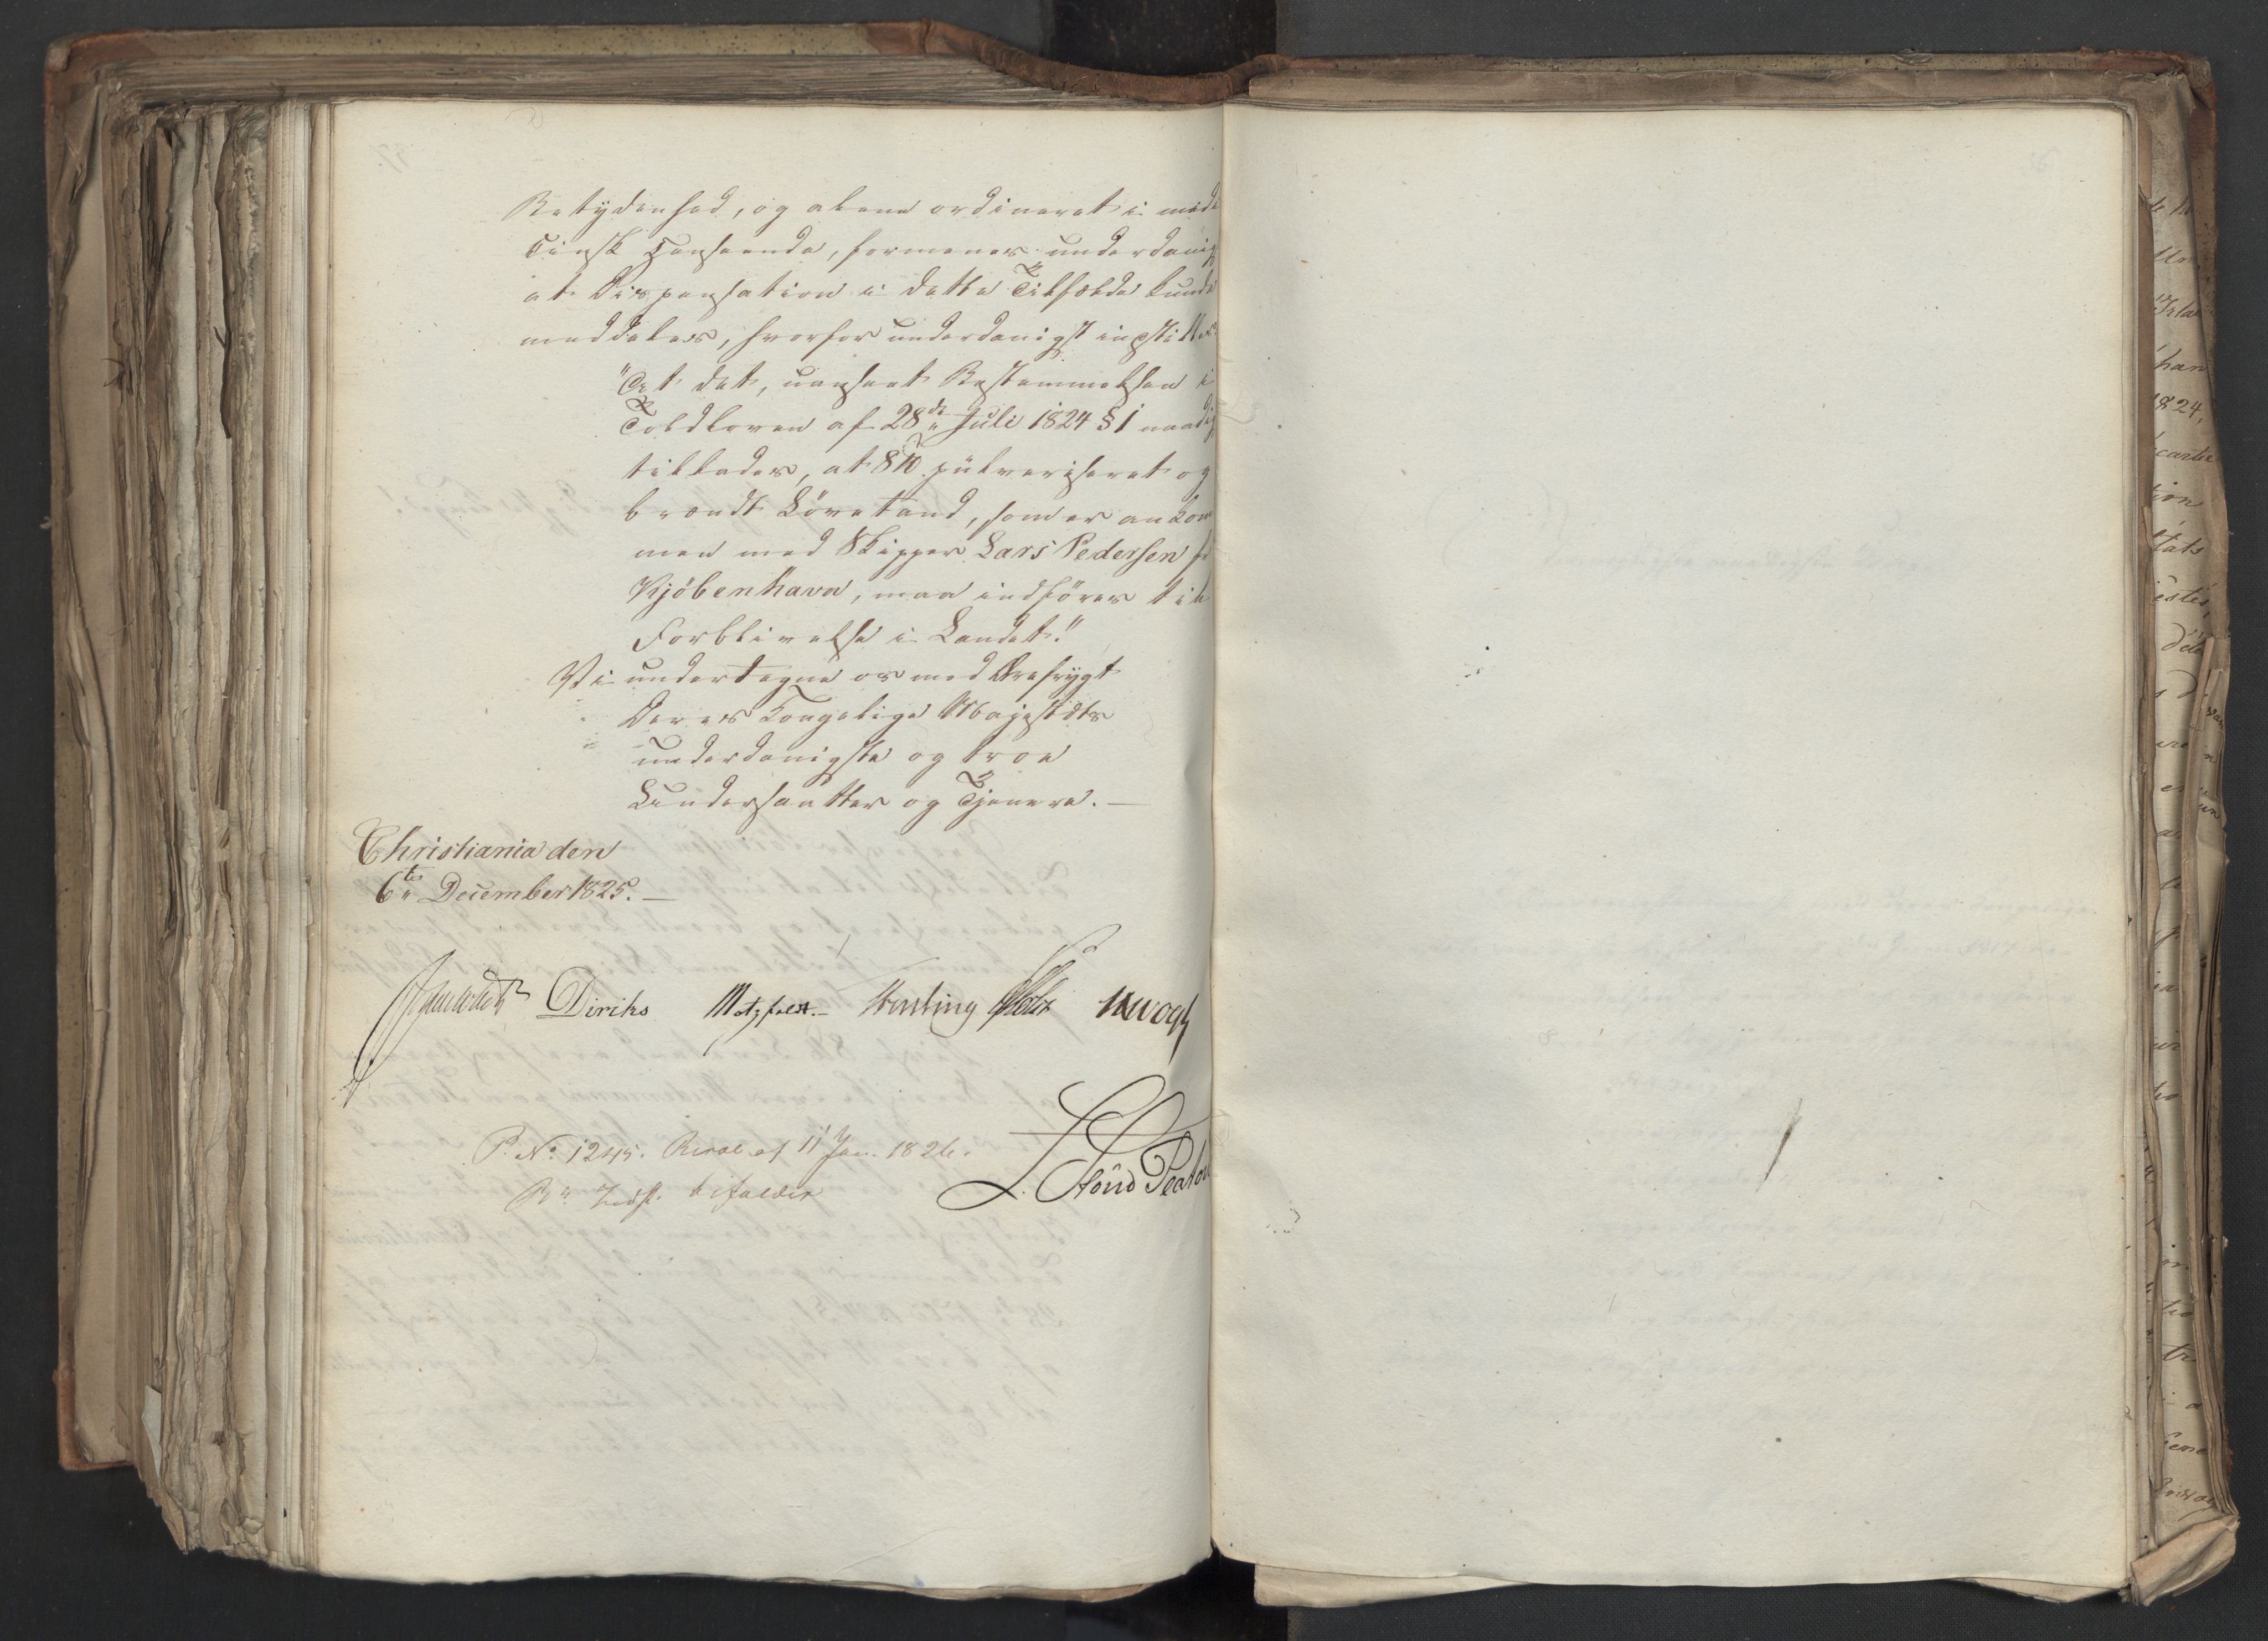 Betydenhed, og alene ordineret i medi
cinsk Henseende, formenes underdanigst
at Dispensation i dette Tilfælde kunde
meddeles, hvorfor underdanigst indstilles:
"At det, uanseet Bestemmelsen i
Toldloven af 28de Juli 1824 § 1 naadigst
tillades, at 8 ℔ pülveriseret og
brændt Løvetand, som er ankom
men med Skipper Lars Pedersen fra
Kjöbenhavn, maa indföres til
Forblivelse i Landet."
Vi undertegne os med Ærefrygt
Deres Kongelige Majestæts
underdanigste og troe
Undersaatter og Tjenere. —
Christiania den
6te December 1825. —
Diriks Motzfeldt. Vogt
P. No 1245. Resol. af 11 Jan. 1826.
Indst. bifaldes